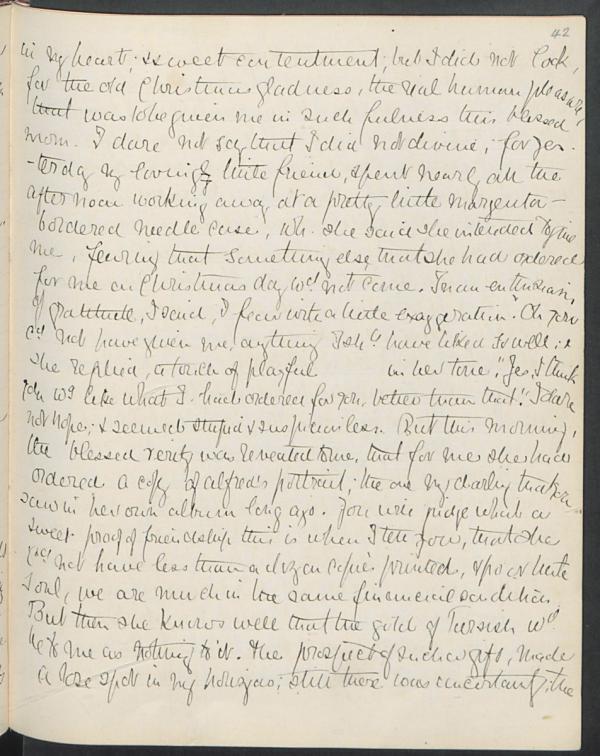 42
in my heart; & sweet contentment; but I did not look,
for the old Christmas gladness, the real human pleasure,
that was to be given me in such fulness this blessed
morn. I dare not say that I did not divine; for yes-
-terday my loving little friend, spent nearly all the
afternoon working away at a pretty little margenta-
bordered needle case, wh. she said she intended to give
me, fearing that something else, that she had ordered
for me on Christmas day wd not come. In an enthusiasm,
of gratitude, I said, "I fear with a little exaggeration". "Oh you
cd not have given me, anything I shd have liked so well; &
she replied, a touch of playful in her tone, "Yes, I think
you wd like what I had ordered for you, better than that". I dare
not hope; & seemed stupid & suspicionless. But this morning,
the blessed verity was revealed to me, that for me she had
ordered a copy of Alfred's portrait; the one my darling that you
saw in her own album long ago. You will judge what a
sweet proof of friendship this is when I tell you, that she
cd not have less than a dozen copies printed, & poor little
soul, we are much in the same financial condition.
But then she knows well that the gold of Tarshish wd
be to me as nothing to it. The prospect of such a gift, made
a rose spot in my horizon; still there was uncertainty; the